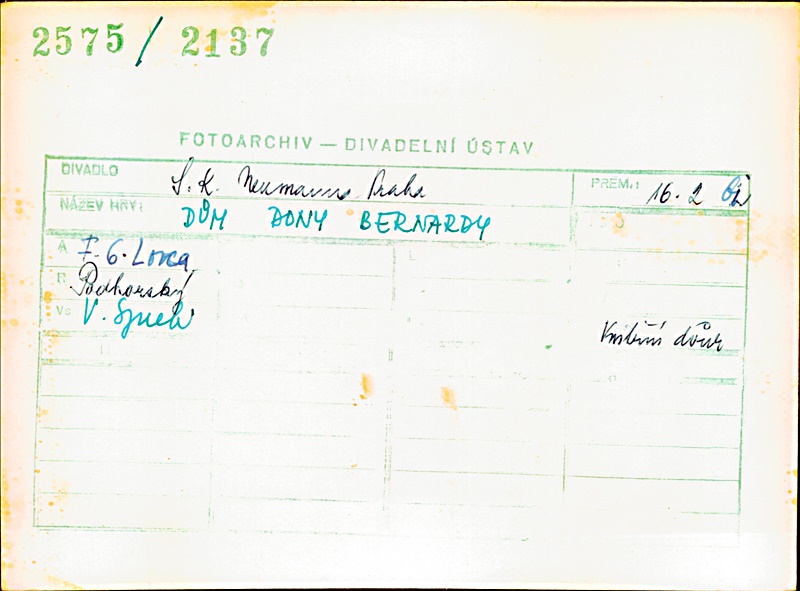 2575 / 2137
FOTOARCHIV — DIVADELNÍ ÚSTAV
DIVADLO S. K. Neumanna Praha PREM.: 16. 2
NÁZEV HRY: DŮM DONY BERNARDY
A F. G. Lorca
R Podhorský
Vs V. Synek
Vnitřní dvůr